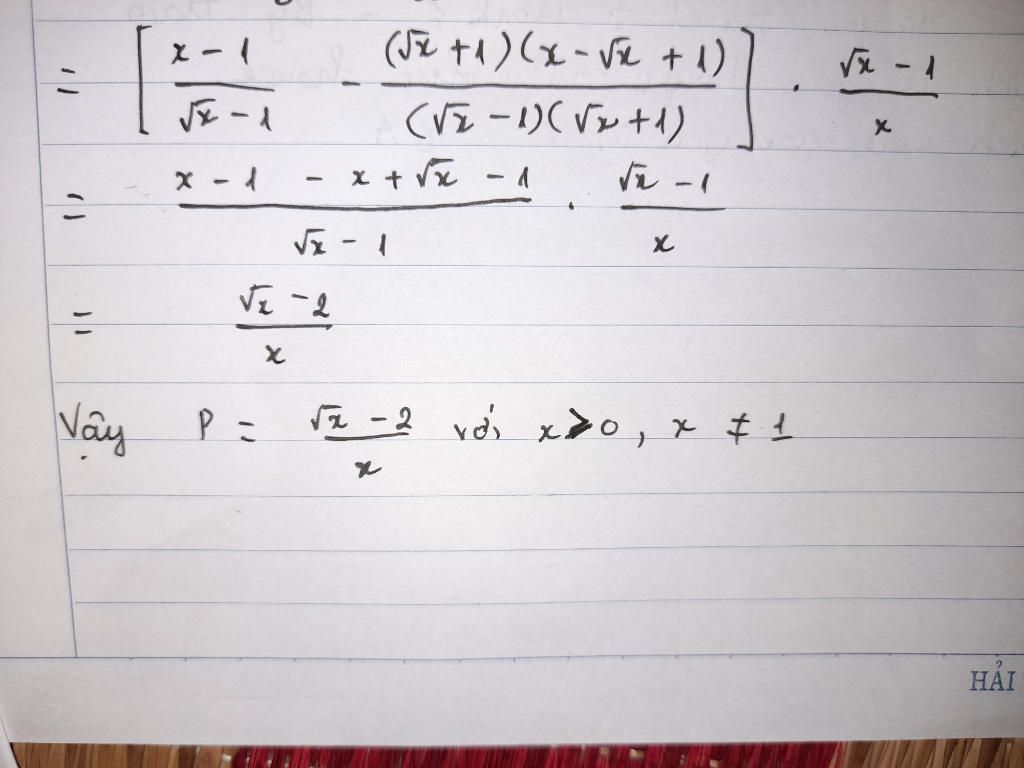 = [ (x - 1)/(√x - 1) - ((√x + 1)(x - √x + 1))/((√x - 1)(√x + 1)) ] . (√x - 1)/x
= (x - 1 - x + √x - 1)/(√x - 1) . (√x - 1)/x
= (√x - 2)/x
Vậy P = (√x - 2)/x với x > 0, x ≠ 1
HẢI